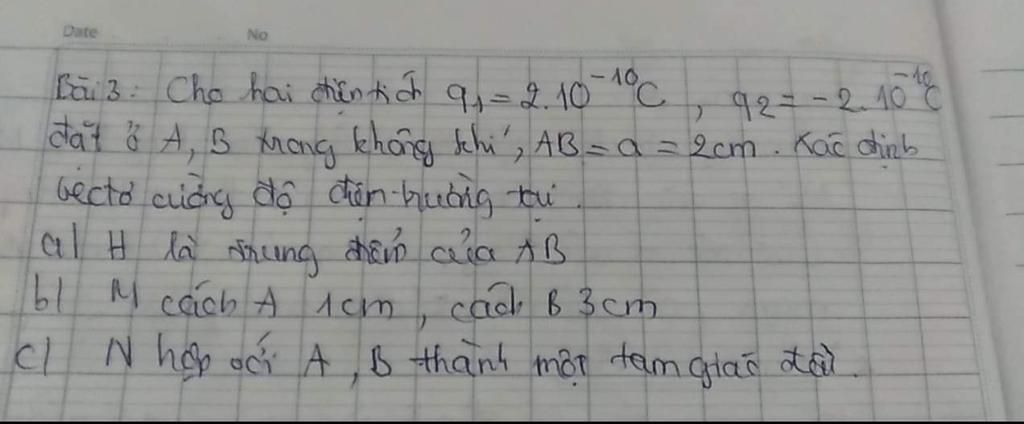 Date No
Bài 3: Cho hai điện tích q₁ = 2.10⁻¹⁰C, q₂ = -2.10⁻¹⁰C
đặt ở A, B trong không khí, AB = a = 2cm. Xác định
véctơ cường độ điện trường tại.
a) H là trung điểm của AB
b) M cách A 1cm, cách B 3cm
c) N hợp với A, B thành một tam giác đều.